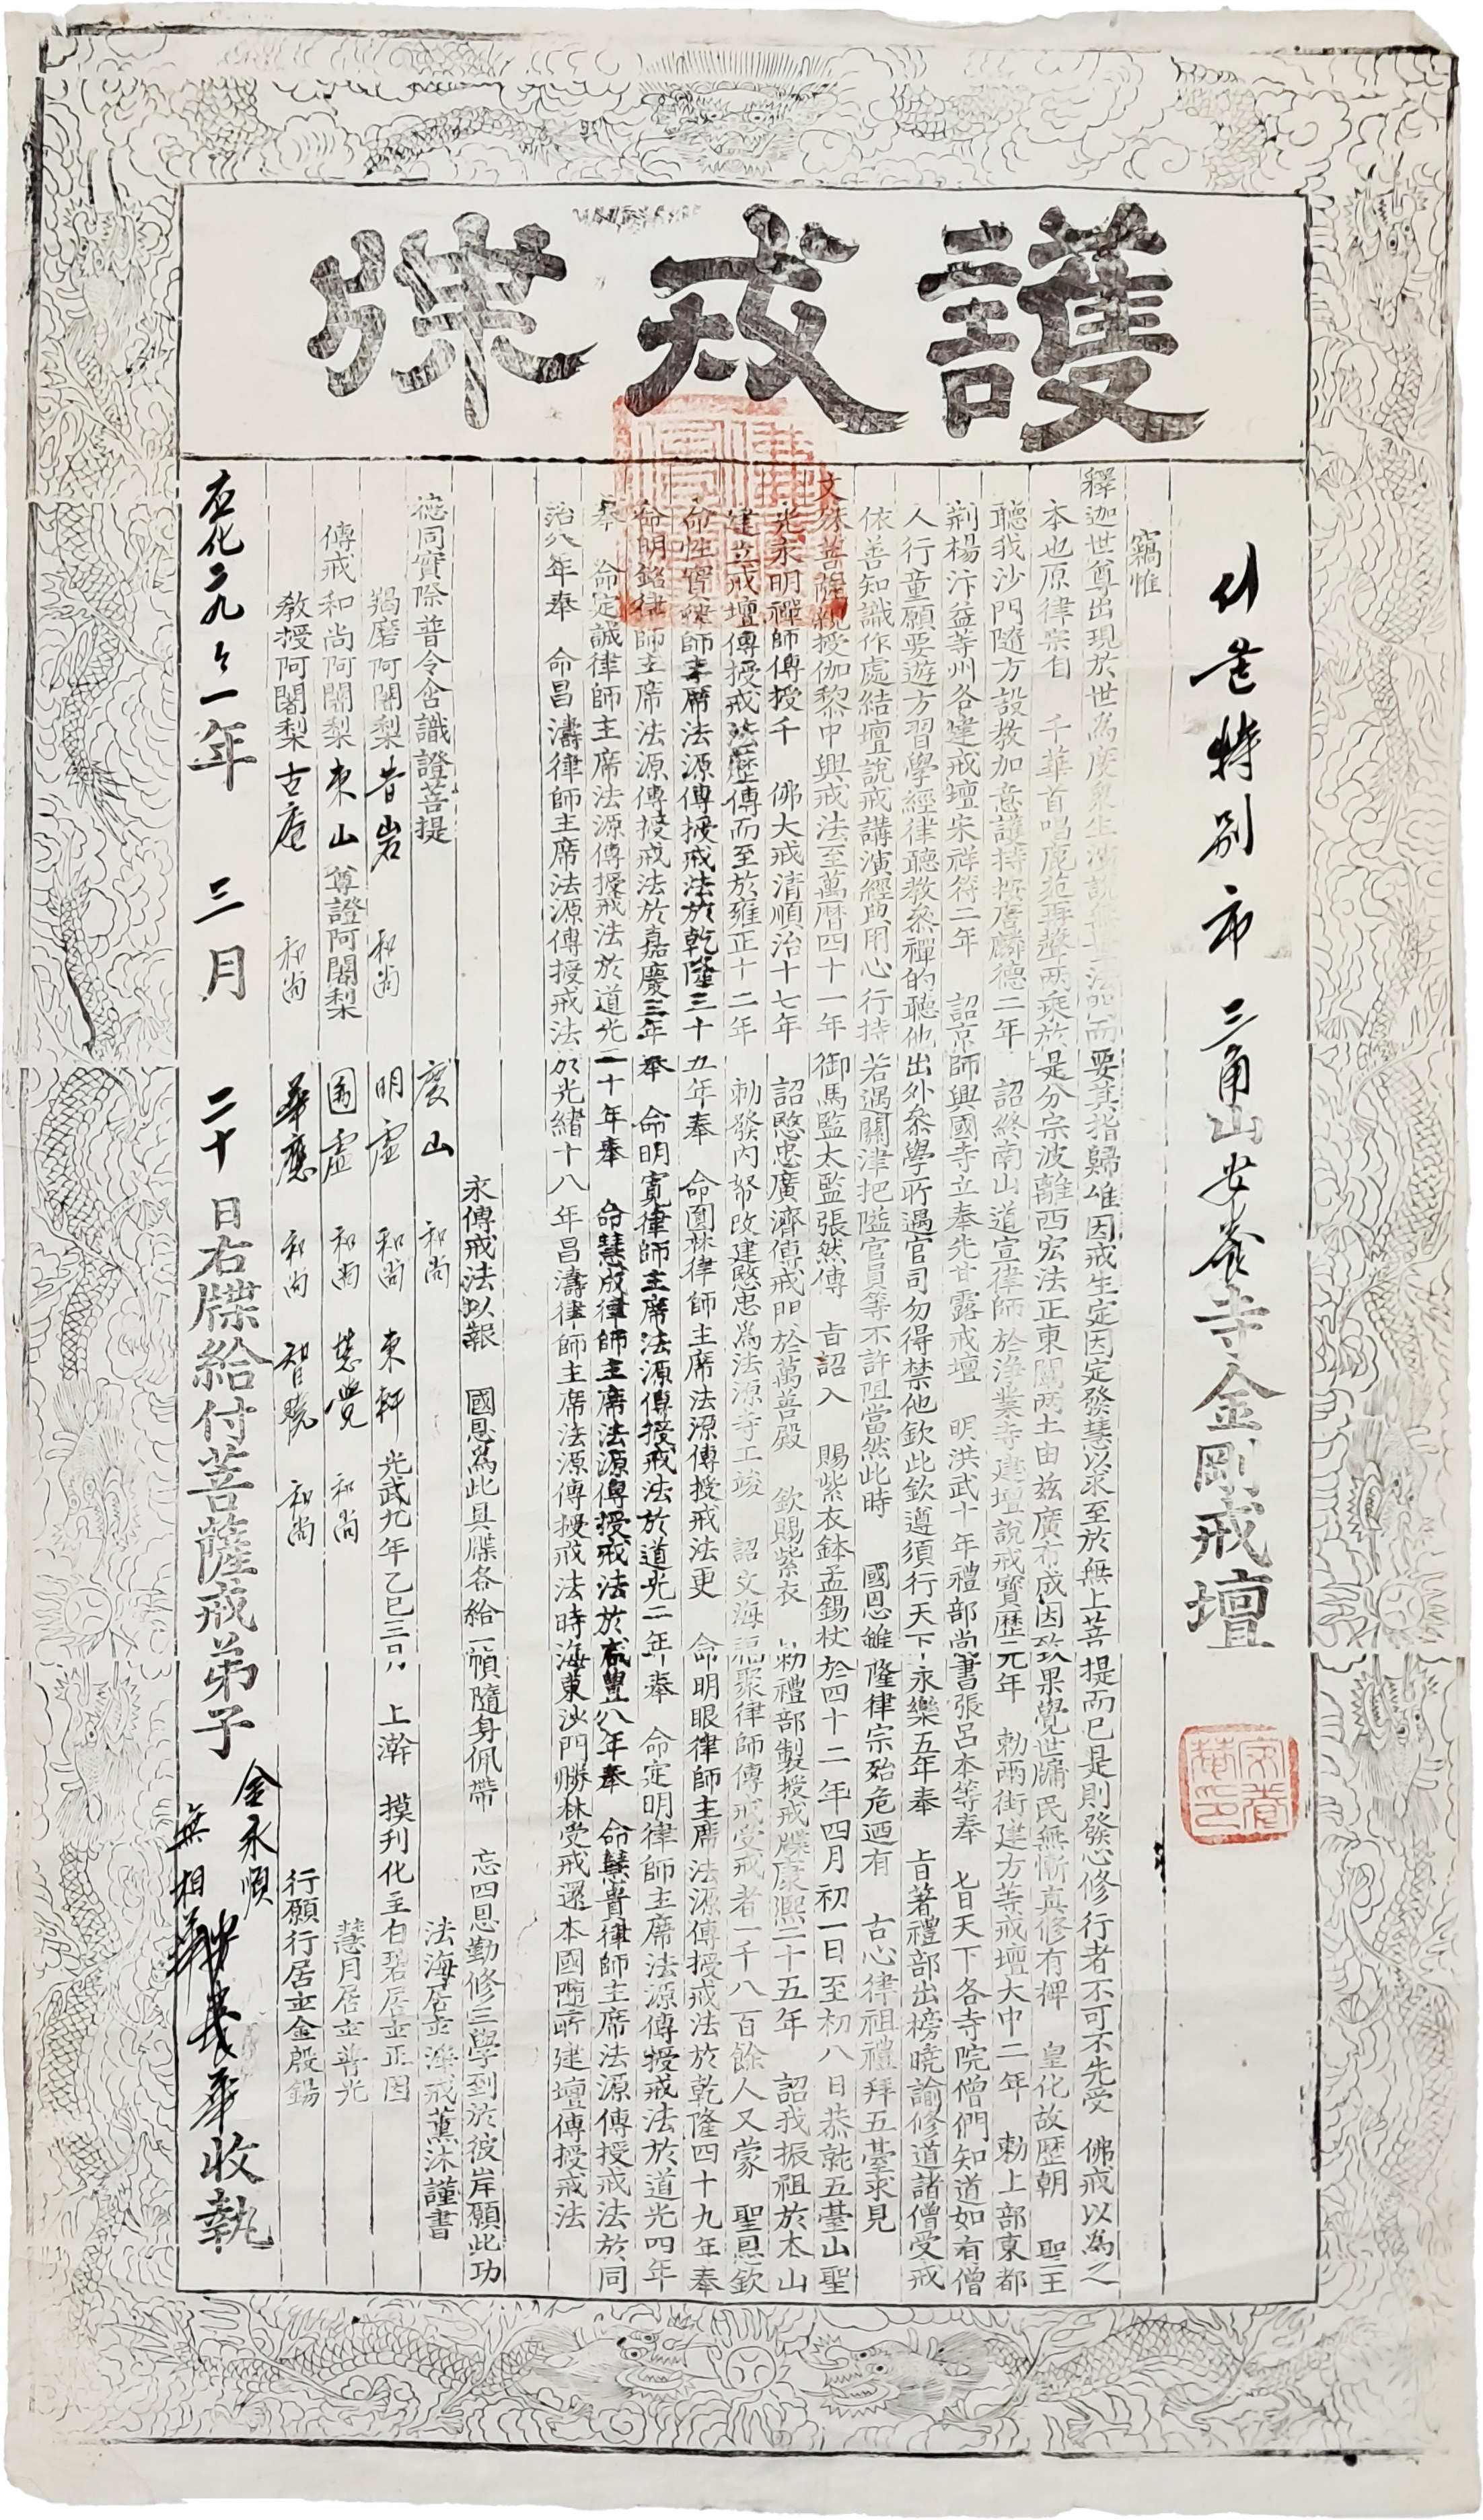 護戒牒
서울特別市 三角山安養寺金剛戒壇
竊惟
釋迦世尊出現於世為度衆生演說 法 而要其指歸唯因戒生定因定發慧以求至於無上菩提而已是則發心修行者不可不先受 佛戒以為之
本也原律宗自 千華首唱鹿苑再聲兩乘於是分宗波離西宏法正東闡兩土由玆廣布成因致果覺世牖民無慚真修有裨 皇化故歷朝 聖王
聽我沙門隨方設教加意護持 麟德二年 詔終南山道宣律師於淨業寺建壇說戒寶歷元年 勅兩街建方等戒壇大中二年 勅上部東都
荊楊汴益等州各建戒壇宋祥符二年 詔京師興國寺立奉先甘露戒壇 明洪武十年禮部尚書張呂本等奉 旨天下各寺院僧們知道如有僧
人行童願要遊方習學經律聽教叅禪的聽他出外叅學所遇官司勿得禁他欽此欽遵須行天下永樂五年奉 旨著禮部出榜曉諭修道諸僧受戒
依善知識作處結壇說戒講演經典用心行持若遇關津把隘官員等不許阻當然此時 國恩雖隆律宗殆危迺有 古心律祖禮拜五臺求見
文殊菩薩親授伽黎中興戒法至萬曆四十一年御馬監太監張然傳 旨詔入 賜紫衣鉢盂錫杖於四十二年四月初一日至初八日恭就五臺山聖
光永明禪師傳授千 佛大戒清順治十七年 詔愍忠廣濟傳戒門於萬善殿 欽賜紫衣 勅禮部製授戒牒康熙二十五年 詔我振祖於本山
建立戒壇傳授戒法歷傳而至於雍正十二年 勅發內帑改建愍忠為法源寺工竣 詔文海福聚律師傳戒受戒者一千八百餘人又蒙 聖恩欽
命性實律師主席法源傳授戒法於乾隆三十五年奉 命圓林律師主席法源傳授戒法更 命明眼律師主席法源傳授戒法於乾隆四十九年奉
命明銘律師主席法源傳授戒法於嘉慶三年奉 命明寬律師主席法源傳授戒法於道光一年奉 命定明律師主席法源傳授戒法於道光四年
奉 命定誠律師主席法源傳授戒法於道光二十年奉 命慧成律師主席法源傳授戒法於咸豐八年奉 命慧貴律師主席法源傳授戒法於同
治八年奉 命昌濤律師主席法源傳授戒法於光緒十八年昌濤律師主席法源傳授戒法時海東沙門勝林受戒還本國隨所建壇傳授戒法
永傳戒法以報 國恩為此具牒各給一幀隨身佩帶 忘四恩勤修三學到於彼岸願此功
德同實際普令含識證菩提 慶山 和尚 法海居士淨戒薰沐謹書
羯磨阿闍梨 昔岩 和尚 明虛 和尚 東軒 光武九年乙巳三月 上澣 摸刊化主白碧居士正因
傳戒和尚阿闍梨 東山 尊證阿闍梨 圓虛 和尚 慧覺 和尚 慧月居士普光
教授阿闍梨 古庵 和尚 華應 和尚 智曉 和尚 行願行居士金殷錫
應化二九々一年 三月 二十日右牒給付菩薩戒弟子 金永順 無相華 收執